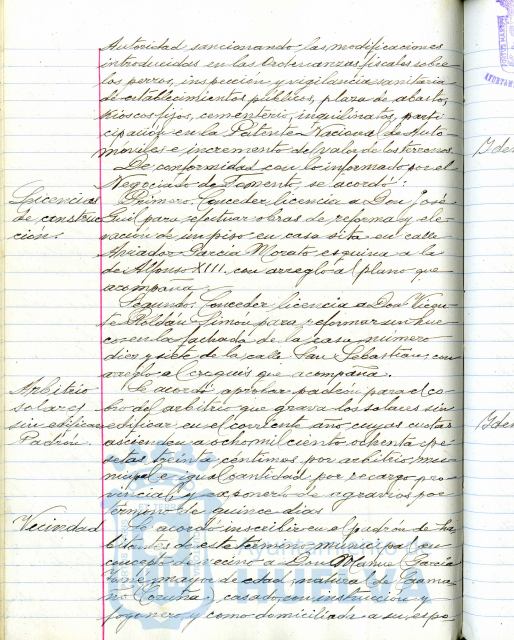 Autoridad sancionando las modificaciones
introducidas en las Ordenanzas fiscales sobre
los perros, inspección y vigilancia sanitaria
de establecimientos públicos, plaza de abastos,
Kioscos fijos, cementerio, inquilinatos, parti-
cipación en la Patente Nacional de Auto-
móviles e incremento del valor de los terrenos.
De conformidad con lo informado por el
Negociado de Fomento, se acordó:
Licencias
de construc
ción.
Primero. Conceder licencia a Don José
Guil para efectuar obras de reforma y ele-
vación de un piso en casa sita en calle
Aviador García Morato esquina a la
de Alfonso XIII. con arreglo al plano que
acompaña.
Segundo. Conceder licencia a Don Vicen-
te Roldán Simón para reformar un hue-
co en la fachada de la casa número
diez y siete de la calle San Sebastián, con
arreglo al croquis que acompaña.
Arbitrio
solares
sin edificar
Padrón.
Se acordó aprobar padrón para el co-
bro del arbitrio que grava los solares sin
edificar en el corriente año, cuyas cuotas
ascienden a ocho mil ciento ochenta pe-
setas treinta céntimos por arbitrio mu-
nicipal e igual cantidad por recargo pro-
vincial y exponerlo de agravios por
término de quince días
Vecindad
Se acordó inscribir en el padrón de ha-
bitantes de este término municipal en
concepto de vecino a Don Manuel García
mayor de edad, natural de
(Coruña), casado, con instrucción y
fogonero, y como domiciliada a su espo-
Iden
Iden